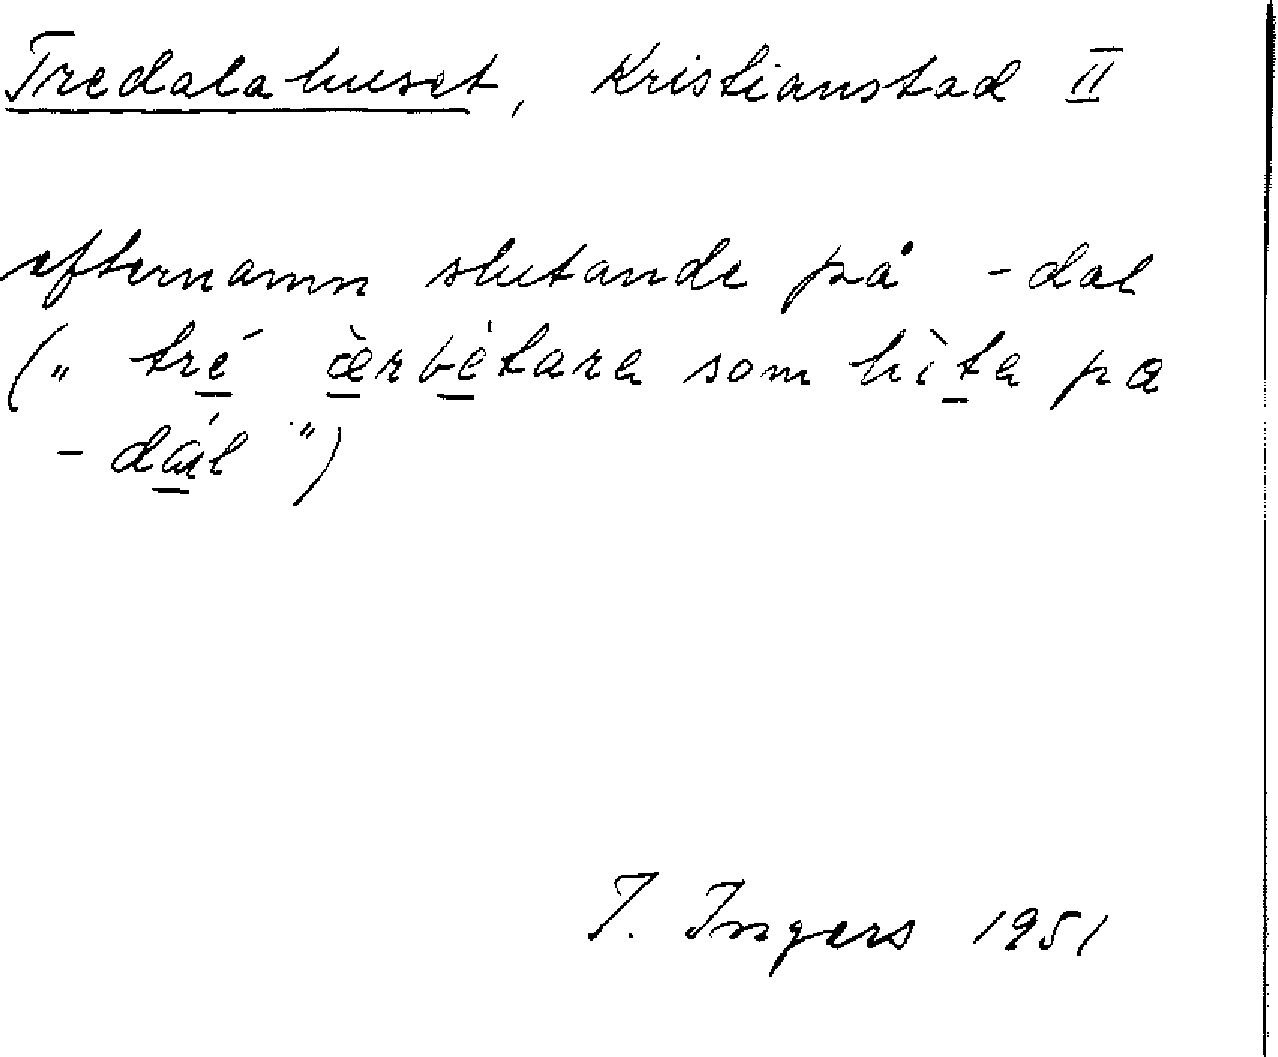 Tredalahuset, Kristianstad II
efternamn slutande på -dal
(„ tré ærbètara som hìta pa
- dál ”)
I. Ingers 1951